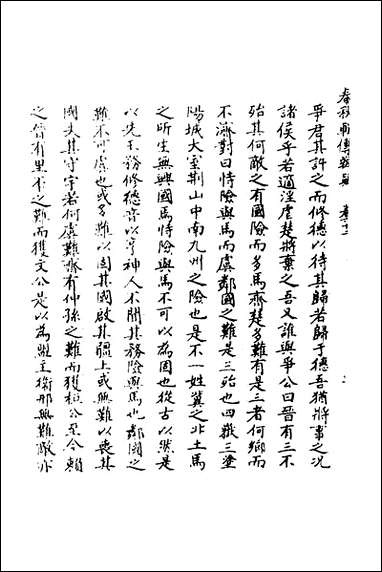 春秋輯傳辨疑 卷六十二
爭君其許之而修德以待其歸若歸于德吾猶將事之況
諸侯乎若適淫虐楚將棄之吾又誰與爭公曰晉有三不
殆其何敵之有國險而多馬齊楚多難有是三者何鄉而
不濟對曰恃險與馬而虞鄰國之難是三殆也四嶽三塗
陽城大室荊山中南九州之險也是不一姓冀之北土馬
之所生無興國焉恃險與馬不可以為固也從古以然是
以先王務修德音以亨神人不聞其務險與馬也鄰國之
難不可虞也或多難以固其國啟其疆土或無難以喪其
國失其守宇若何虞難齊有仲孫之難而獲桓公至今賴
之晉有里丕之難而獲文公是以為盟主衛邢無難敵亦